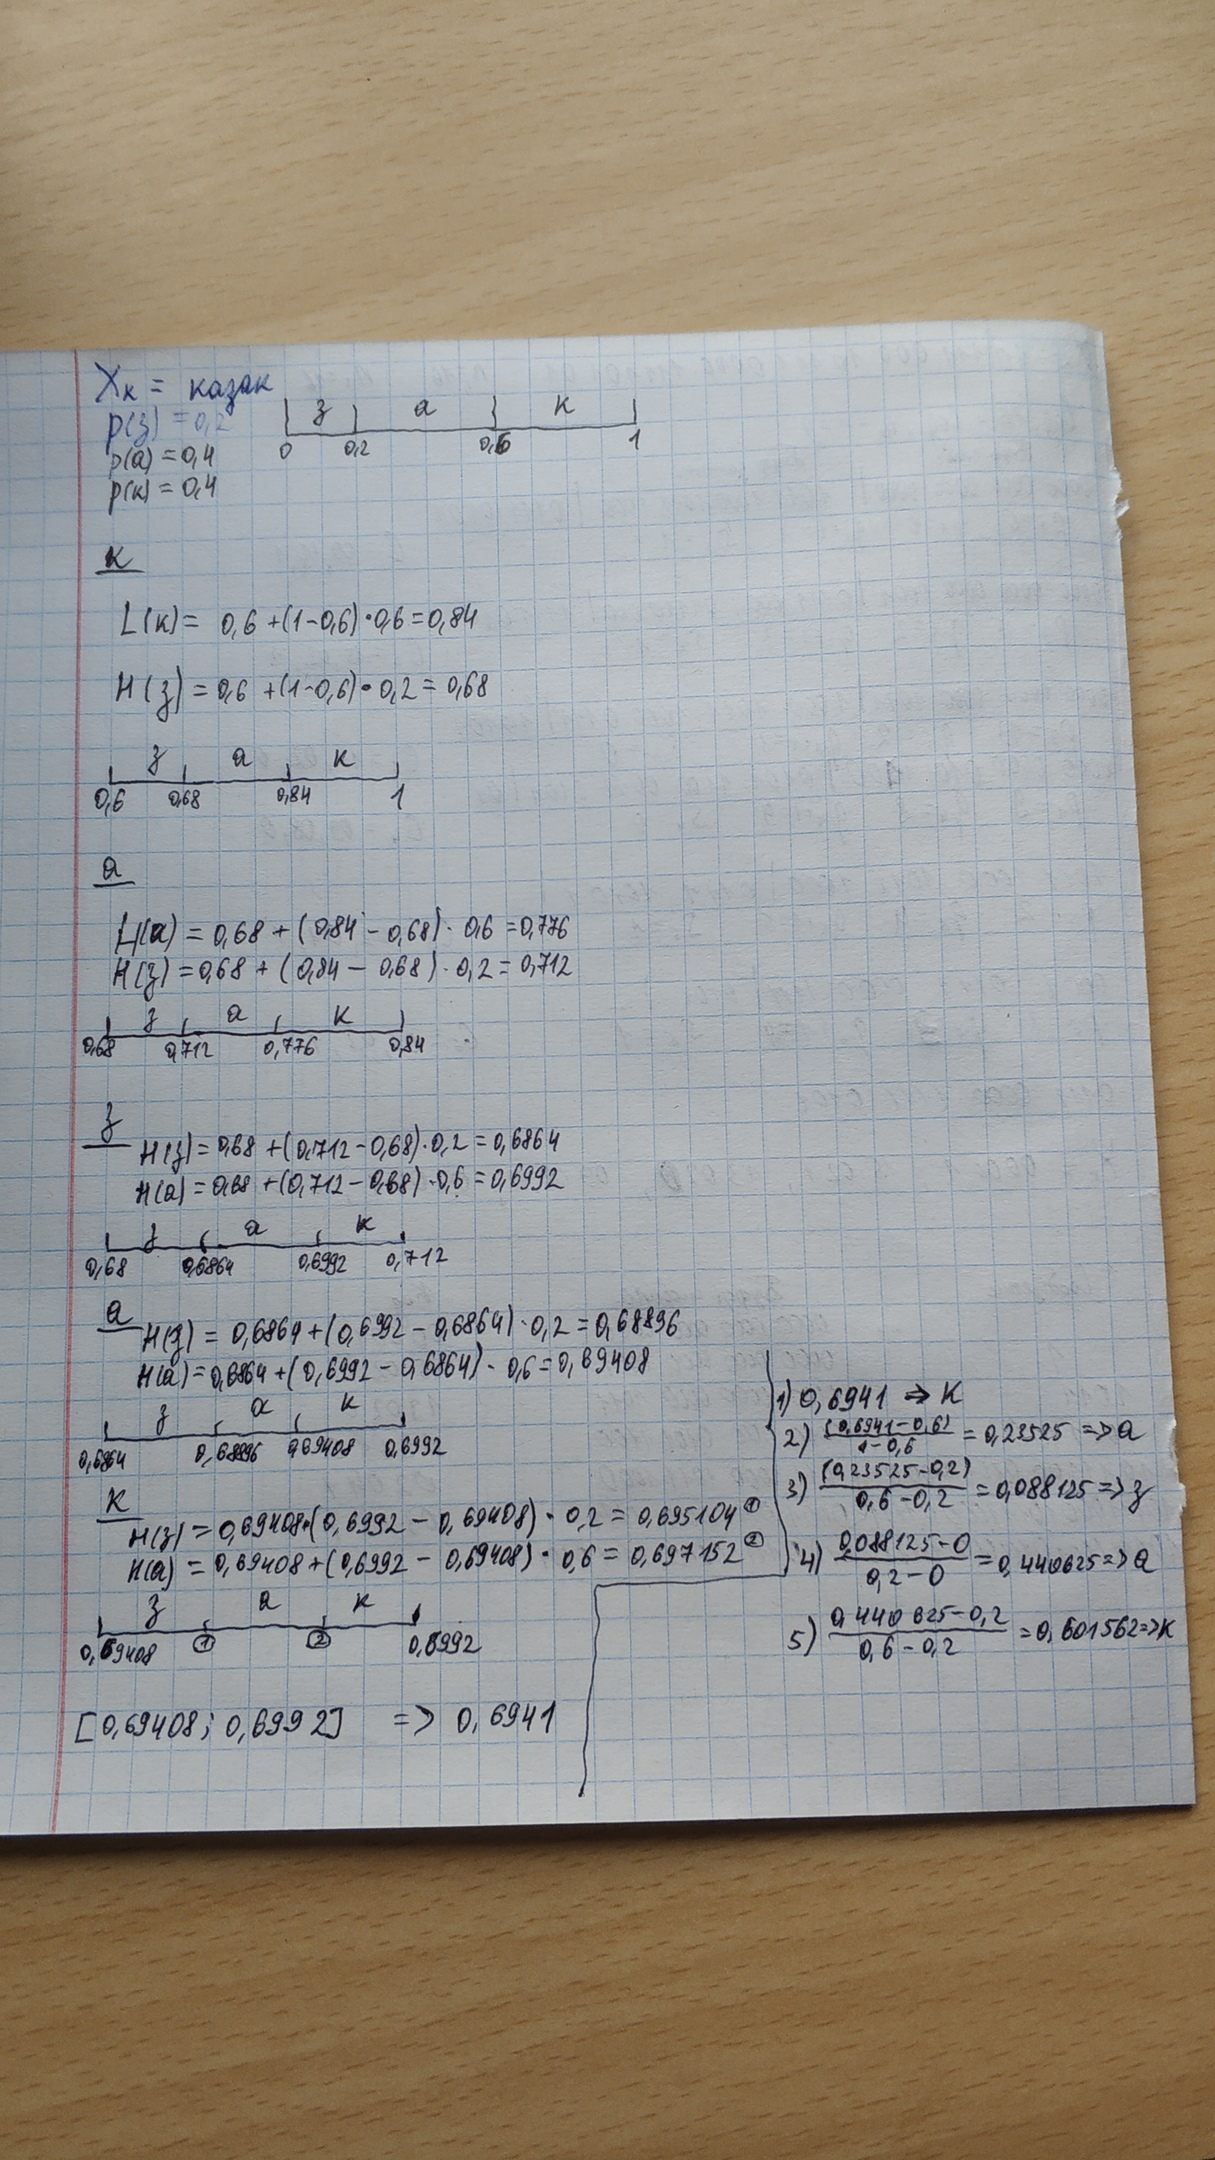 Xк = казак
p(з) = 0,2
p(а) = 0,4
p(к) = 0,4
з а к
0 0,2 0,6 1
к
L(к) = 0,6 + (1-0,6) · 0,6 = 0,84
H(з) = 0,6 + (1-0,6) · 0,2 = 0,68
з а к
0,6 0,68 0,84 1
а
H(а) = 0,68 + (0,84 - 0,68) · 0,6 = 0,776
H(з) = 0,68 + (0,84 - 0,68) · 0,2 = 0,712
з а к
0,68 0,712 0,776 0,84
з
H(з) = 0,68 + (0,712 - 0,68) · 0,2 = 0,6864
H(а) = 0,68 + (0,712 - 0,68) · 0,6 = 0,6992
з а к
0,68 0,6864 0,6992 0,712
а
H(з) = 0,6864 + (0,6992 - 0,6864) · 0,2 = 0,68896
H(а) = 0,6864 + (0,6992 - 0,6864) · 0,6 = 0,69408
з а к
0,6864 0,68896 0,69408 0,6992
к
H(з) = 0,69408 + (0,6992 - 0,69408) · 0,2 = 0,695104 ①
H(а) = 0,69408 + (0,6992 - 0,69408) · 0,6 = 0,697152 ②
з а к
0,69408 ① ② 0,6992
[0,69408; 0,6992] => 0,6941
1) 0,6941 => К
2) (0,6941-0,6)/1-0,6 = 0,23525 => а
3) (0,23525-0,2)/0,6-0,2 = 0,088125 => з
4) 0,088125-0/0,2-0 = 0,440625 => а
5) 0,440625-0,2/0,6-0,2 = 0,601562 => к